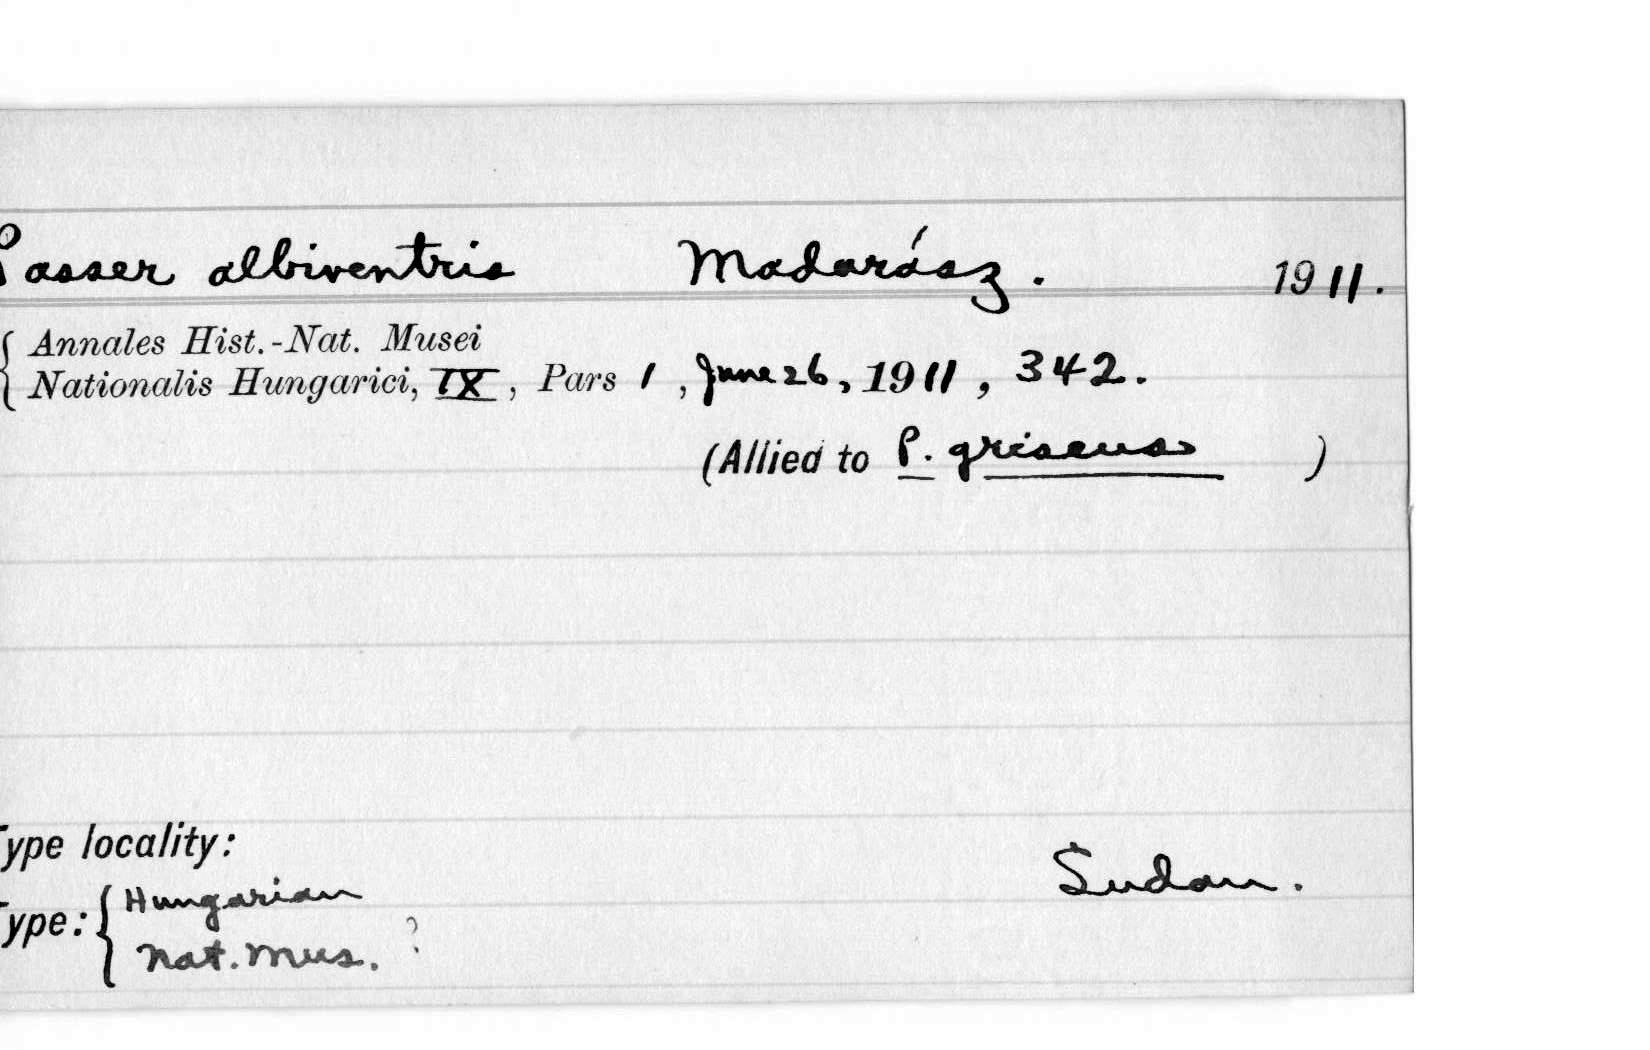 Passer albiventris Madarász. 1911.
{ Annales Hist.-Nat. Musei
Nationalis Hungarici, IX, Pars 1, June 26, 1911, 342.
(Allied to P. griseus )
Type locality:
Sudan.
Type: { Hungarian
Nat. Mus. ?